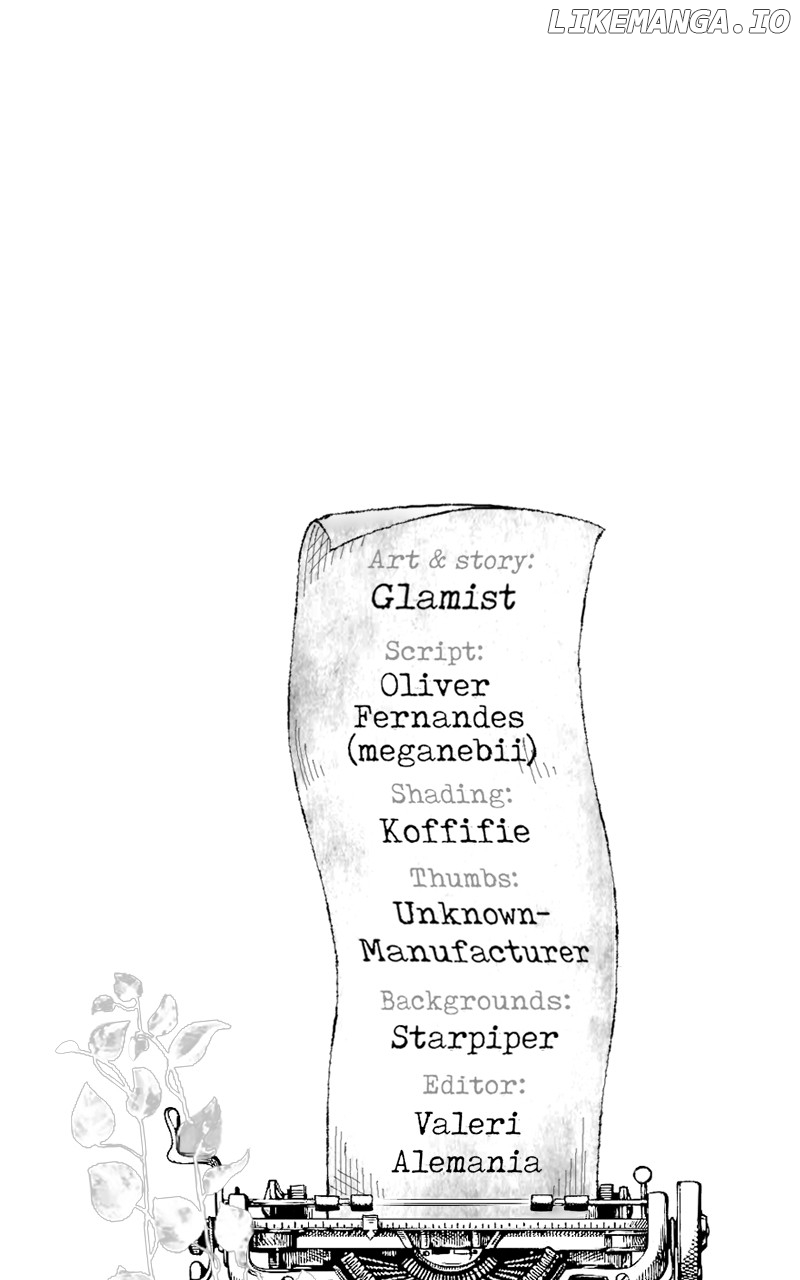 LIKEMANGA.IO
Art & story:
Glamist
Script:
Oliver
Fernandes
(meganebii)
Shading:
Koffifie
Thumbs:
Unknown-
Manufacturer
Backgrounds:
Starpiper
Editor:
Valeri
Alemania